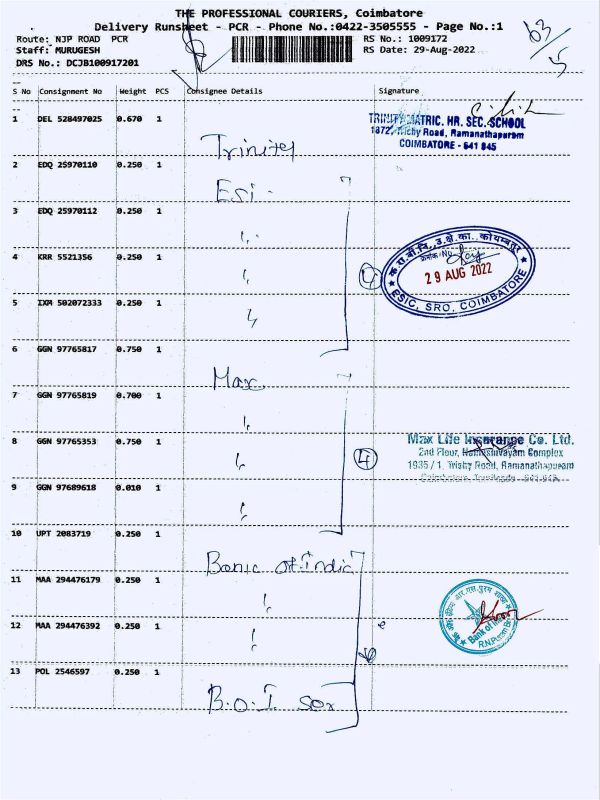 THE PROFESSIONAL COURIERS, Coimbatore
Delivery Runsheet - PCR - Phone No.:0422-3505555 - Page No.:1
Route: NJP ROAD PCR
RS No.: 1009172
Staff: MURUGESH
RS Date: 29-Aug-2022
DRS No.: DCJB100917201
S No Consignment No Weight PCS Consignee Details Signature
1 DEL 528497025 0.670 1
TRINITY MATRIC. HR. SEC. SCHOOL
1872, Trichy Road, Ramanathapuram
COIMBATORE - 641 045
Trinity
2 EDQ 25970110 0.250 1
Esi -
3 EDQ 25970112 0.250 1
क.रा.बी.नि., उ.क्षे.का., कोयम्बतूर
4 KRR 5521356 0.250 1
29 AUG 2022
ESIC, SRO, COIMBATORE
5 IXM 502072333 0.250 1
6 GGN 97765817 0.750 1
Max
7 GGN 97765819 0.700 1
8 GGN 97765353 0.750 1
4
Max Life Insurance Co. Ltd.
2nd Floor, Complex
1935 / 1, Trichy Road, Ramanathapuram
9 GGN 97689618 0.010 1
10 UPT 2083719 0.250 1
Bank of India
11 MAA 294476179 0.250 1
12 MAA 294476392 0.250 1
Bank of India
13 POL 2546597 0.250 1
B.O.I